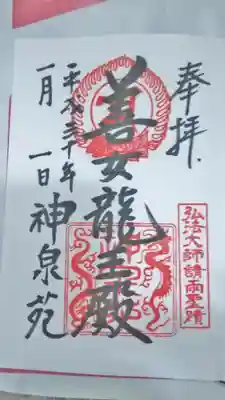 奉拝
弘法大師請雨聖蹟
善女龍王殿
平成三十年
一月一日
神泉苑